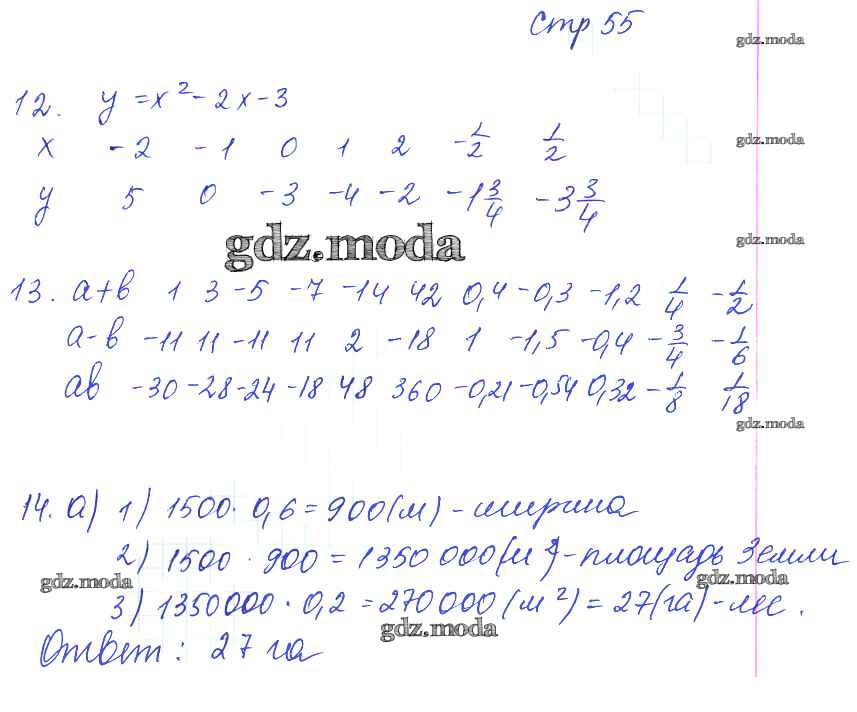 Стр 55
gdz.moda
12. y = x² - 2x - 3
x -2 -1 0 1 2 -1/2 1/2
gdz.moda
y 5 0 -3 -4 -2 -1 3/4 -3 3/4
gdz.moda
gdz.moda
13. a+b 1 3 -5 -7 -14 42 0,4 -0,3 -1,2 1/4 -1/2
a-b -11 11 -11 11 2 -18 1 -1,5 -0,4 -3/4 -1/6
ab -30 -28 -24 -18 48 360 -0,21 -0,54 0,32 -1/8 1/18
gdz.moda
14. а) 1) 1500 · 0,6 = 900 (м) - ширина
2) 1500 · 900 = 1350 000 (м²) - площадь Земли
gdz.moda
gdz.moda
3) 1350000 · 0,2 = 270000 (м²) = 27 (га) - лес.
gdz.moda
Ответ: 27 га